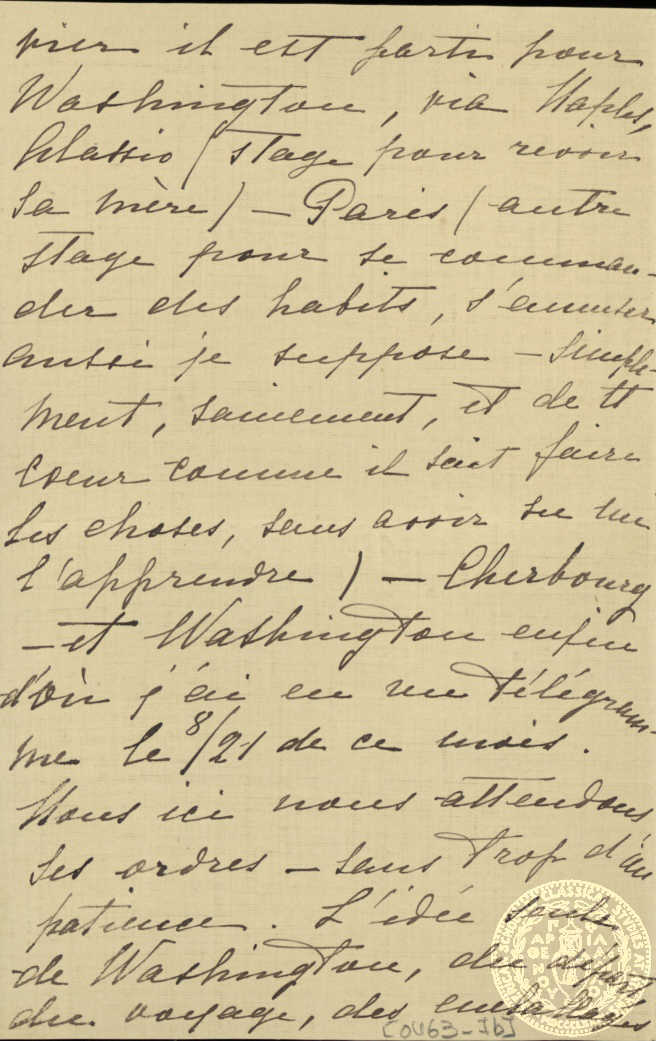 vier il est parti pour
Washington, via Naples,
Alassio (stage pour revoir
sa mère) – Paris (autre
stage pour se comman-
der des habits, s'amuser
aussi je suppose – simple-
ment, sainement, et de tt
coeur comme il sait faire
les choses, sans avoir su
l'apprendre) – Cherbourg
– et Washington enfin
d'où j'ai eu un télégram-
me le 8/21 de ce mois.
Nous ici nous attendons
ses ordres – sans trop d'im
patience. L'idée seule
de Washington, du départ
du voyage, des emballages
[OU63-Ib]